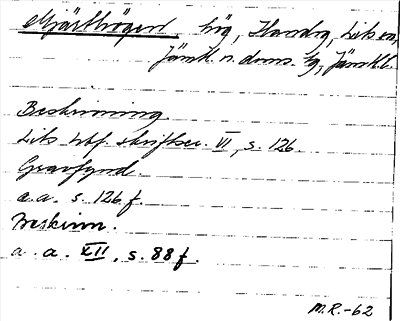 Mjästhögen, hög, Handog, Lits sn,
Jämtl. n. doms. tg, Jämtl. l.
Beskrivning.
Lits hbf. skriftser. VI, s. 126.
Gravfynd.
a.a. s. 126 f.
Beskrivn.
a. a. XII, s. 88 f.
M.R.-62